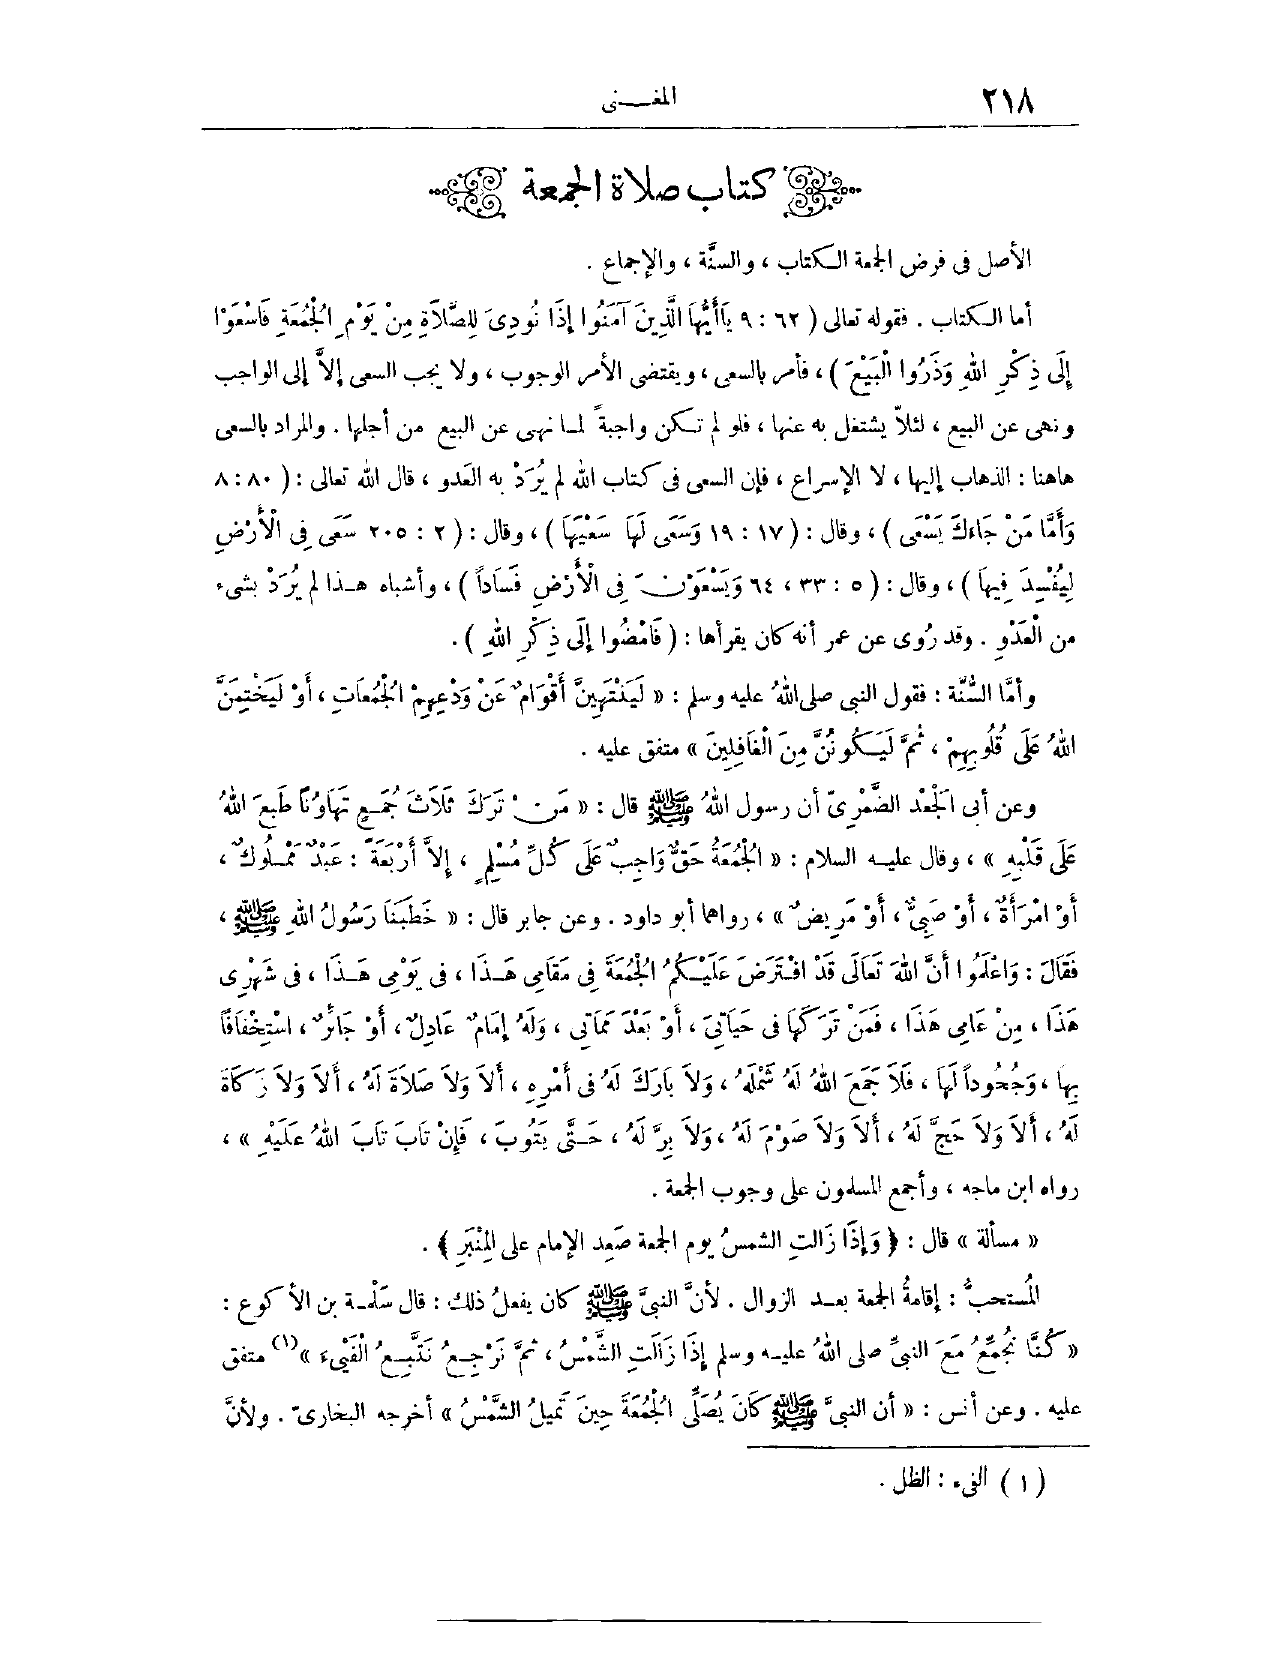 ٢١٨
المغـــنى
كتاب صلاة الجمعة
الأصل فى فرض الجمعة الكتاب ، والسنَّة ، والإجماع .
أما الكتاب . فقوله تعالى ( ٦٢ : ٩ يَاأَيُّهَا الَّذِينَ آمَنُوا إِذَا نُودِىَ لِلصَّلاَةِ مِنْ يَوْمِ الْجُمُعَةِ فَاسْعَوْا
إِلَى ذِكْرِ اللهِ وَذَرُوا الْبَيْعَ ) ، فأمر بالسعى ، ويقتضى الأمر الوجوب ، ولا يجب السعى إلاَّ إلى الواجب
ونهى عن البيع ، لئلاّ يشتغل به عنها ، فلو لم تكن واجبةً لما نهى عن البيع من أجلها . والمراد بالسعى
هاهنا : الذهاب إليها ، لا الإسراع ، فإن السعى فى كتاب الله لم يُرَدْ به العَدو ، قال الله تعالى : ( ٨٠ : ٨
وَأَمَّا مَنْ جَاءَكَ يَسْعَى ) ، وقال : ( ١٧ : ١٩ وَسَعَى لَهَا سَعْيَهَا ) ، وقال : ( ٢ : ٢٠٥ سَعَى فِى الْأَرْضِ
لِيُفْسِدَ فِيهَا ) ، وقال : ( ٥ : ٣٣ ، ٦٤ وَيَسْعَوْنَ فِى الْأَرْضِ فَسَاداً ) ، وأشباه هـذا لم يُرَدْ بشىء
من الْعَدْوِ . وقد رُوى عن عمر أنه كان يقرأها : ( فَامْضُوا إِلَى ذِكْرِ اللهِ ) .
وأمَّا السُّنَّة : فقول النبى صلى اللهُ عليه وسلم : « لَيَنْتَهِيَنَّ أَقْوَامٌ عَنْ وَدْعِهِمْ الْجُمُعَاتِ ، أَوْ لَيَخْتِمَنَّ
اللهُ عَلَى قُلُوبِهِمْ ، ثُمَّ لَيَكُونُنَّ مِنَ الْغَافِلِينَ » متفق عليه .
وعن أبى الْجَعْد الضَّمْرِىّ أن رسول اللهُ ﷺ قال : « مَنْ تَرَكَ ثَلَاثَ جُمَعٍ تَهَاوُنًا طَبَعَ اللهُ
عَلَى قَلْبِهِ » ، وقال عليـه السلام : « الْجُمُعَةُ حَقٌّ وَاجِبٌ عَلَى كُلِّ مُسْلِمٍ ، إِلاَّ أَرْبَعَةَ : عَبْدٌ مَمْلُوكٌ ،
أَوْ امْرَأَةٌ ، أَوْ صَبِىٌّ ، أَوْ مَرِيضٌ » ، رواها أبو داود . وعن جابر قال : « خَطَبَنَا رَسُولُ اللهِ ﷺ ،
فَقَالَ : وَاعْلَمُوا أَنَّ اللهَ تَعَالَى قَدْ افْتَرَضَ عَلَيْكُمُ الْجُمُعَةَ فِى مَقَامِى هَـذَا ، فى يَوْمِى هَـذَا ، فى شَهْرِى
هَذَا ، مِنْ عَامِى هَذَا ، فَمَنْ تَرَكَهَا فى حَيَاتِىَ ، أَوْ بَعْدَ مَمَاتِى ، وَلَهُ إِمَامٌ عَادِلٌ ، أَوْ جَائِرٌ ، اسْتِخْفَافًا
بِهَا ، وَجُحُوداً لَهَا ، فَلَا جَمَعَ اللهُ لَهُ شَمْلَهُ ، وَلاَ بَارَكَ لَهُ فى أَمْرِهِ ، أَلاَ وَلاَ صَلَاةَ لَهُ ، أَلاَ وَلاَ زَكَاةَ
لَهُ ، أَلاَ وَلاَ حَجَّ لَهُ ، أَلاَ وَلاَ صَوْمَ لَهُ ، وَلاَ بِرَّ لَهُ ، حَتَّى يَتُوبَ ، فَإِنْ تَابَ تَابَ اللهُ عَلَيْهِ » ،
رواه ابن ماجه ، وأجمع المسلمون على وجوب الجمعة .
« مسألة » قال : ﴿ وَإِذَا زَالتِ الشمسُ يوم الجمعة صَعِد الإمام على المِنْبَرِ ﴾ .
المُستحبُّ : إقامةُ الجمعة بعـد الزوال . لأنَّ النبىَّ ﷺ كان يفعلُ ذلك : قال سَلَمـة بن الأكوع :
« كُنَّا نُجَمِّعُ مَعَ النبىِّ صلى اللهُ عليـه وسلم إِذَا زَالَتِ الشَّمْسُ ، ثُمَّ نَرْجِعُ نَتَّبِعُ الْفَىْءَ »(١) متفق
عليه . وعن أنس : « أن النبىَّ ﷺ كَانَ يُصَلِّى الْجُمُعَةَ حِينَ تَمِيلُ الشَّمْسُ » أخرجه البخارىّ . ولأنَّ
( ١ ) الفىء : الظل .